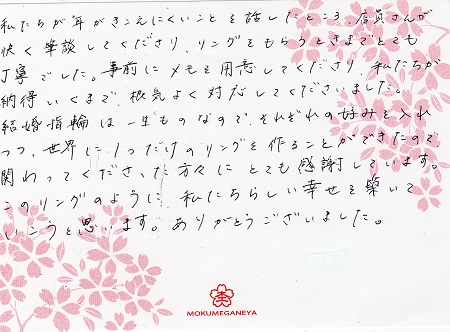 私たちが耳がきこえにくいことを話したところ、店員さんが
快く筆談してくださり、リングをもらうときまでとても
丁寧でした。事前にメモを用意してくださり、私たちが
納得いくまで、根気よく対応してくださいました。
結婚指輪は一生ものなので、それぞれの好みを入れ
つつ、世界に1つだけのリングを作ることができたので、
関わってくださった方々にとても感謝しています。
このリングのように、私たちらしい幸せを築いて
いこうと思います。ありがとうございました。
MOKUMEGANEYA